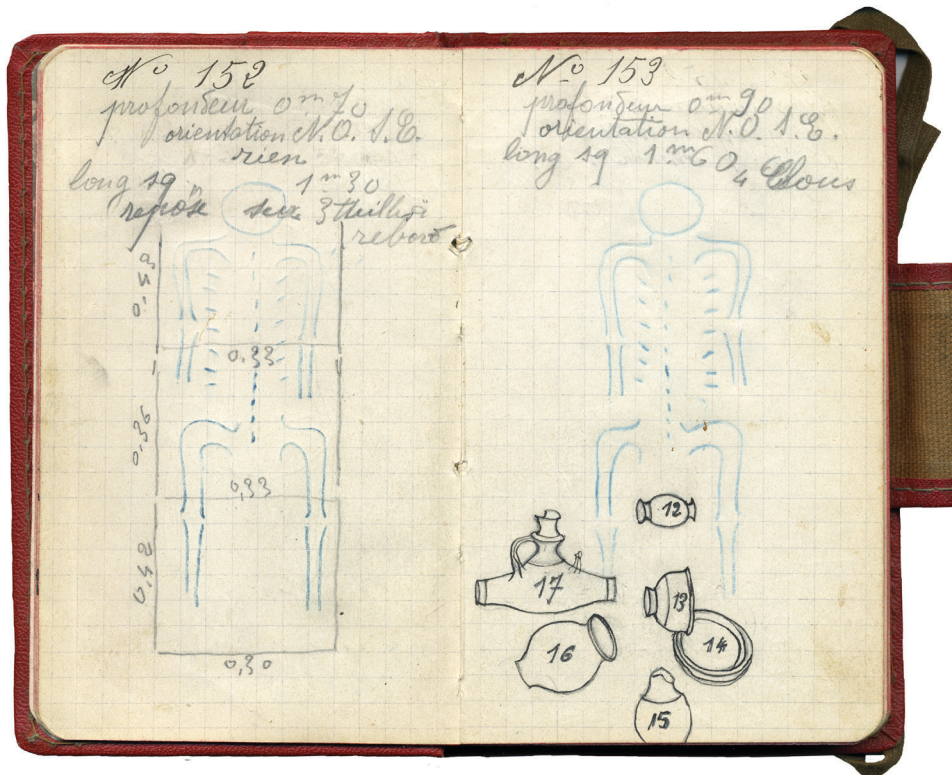 No 152
profondeur 0m70
orientation N.O. S.E.
rien
long sq 1m30
repose sur 3 thuilles
rebord
0,33
0,36
0,33
0,42
0,30
No 153
profondeur 0m90
orientation N.O. S.E.
long sq 1m60 4 Clous
12
17
13
14
16
15